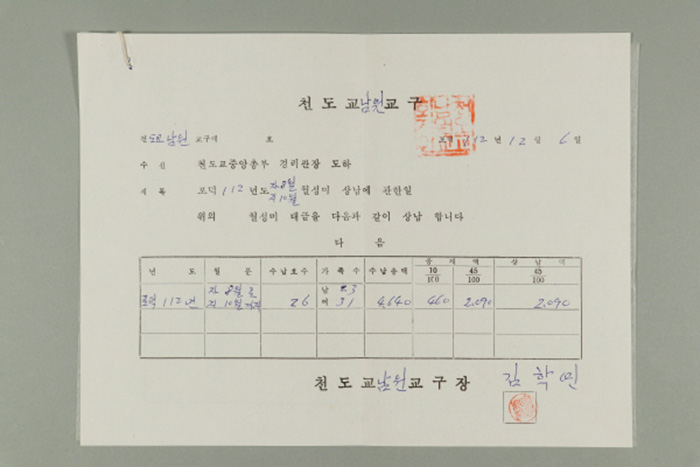 천도교남원교구
천도교남원교구 호 포덕 112년 12월 6일
수신 천도교중앙총부 경리관장 도하
제목 포덕 112년도 자8월 지10월 월성미 상납에 관한일
위의 월성미 대금을 다음과 같이 상납 합니다
다음
공제액 상납액
년도 월분 수납호수 가족수 수납총액 10/100 45/100 45/100
포덕 112년 자 8월 지 10월 26 남 23 여 31 4,640 460 2,090 2,090
천도교남원교구장 김학민